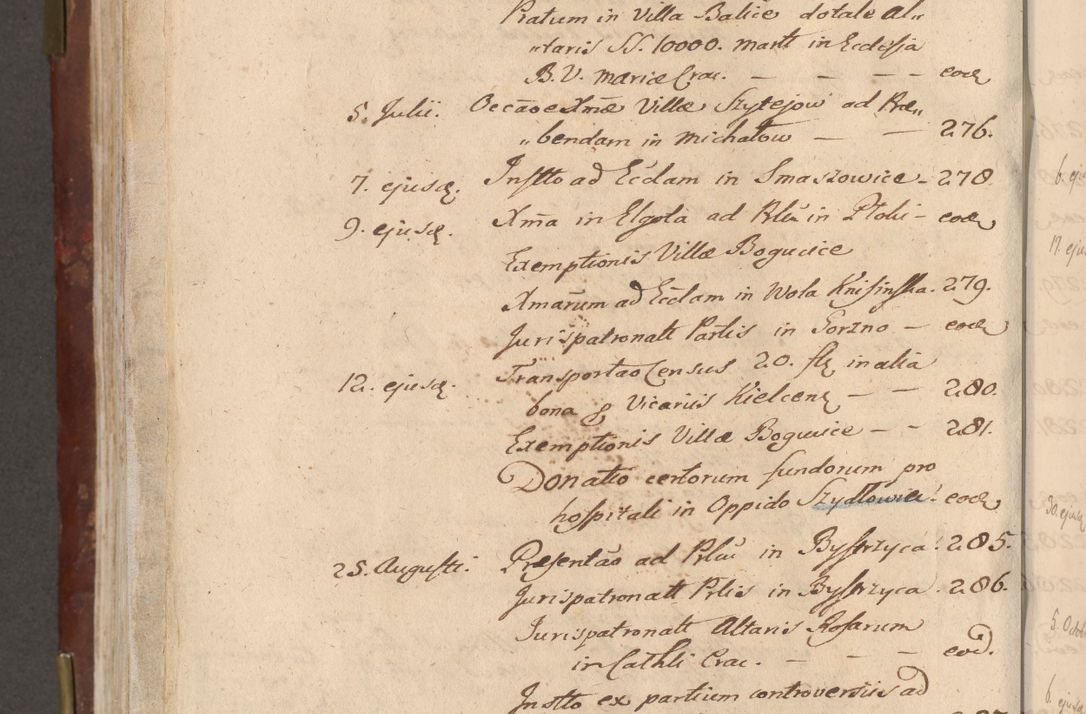 Pratum in Villa Balice dotale al„
„taris SS. 10000. martt in Ecclesia
B. V. Mariæ Crac. — — — — eod
5. Julii. Occãoe Xmæ Villæ Szytejow ad Præ„
„bendam in Michałow — — 276.
7. ejusq. Instto ad Ecclam in Smaszowice — 278
9. ejusq. Xma in Elgota ad Plñ in Ptoki — eod
Exemptionis Villæ Bogucice
Xmarum ad Ecclam in Wola Knisinska. 279.
Jurispatronatt Partis in Gorzno — eod
12. ejusq. Transportao Census 20. flq in alia
bona p Vicariis Kielcenq — — 280.
Exemptionis Villæ Bogucice — — 281.
Donatto certorum fundorum pro
hospitali in Oppido Szydłowice. eod
25. Augusti. Presentão ad Plñ in Bystrzyca. 285.
Jurispatronatt Prlis in Bystrzyca. 286.
Jurispatronatt Altaris Rosarum
in Cathli Crac. — — — eod.
Instto ex partium controversiis ad